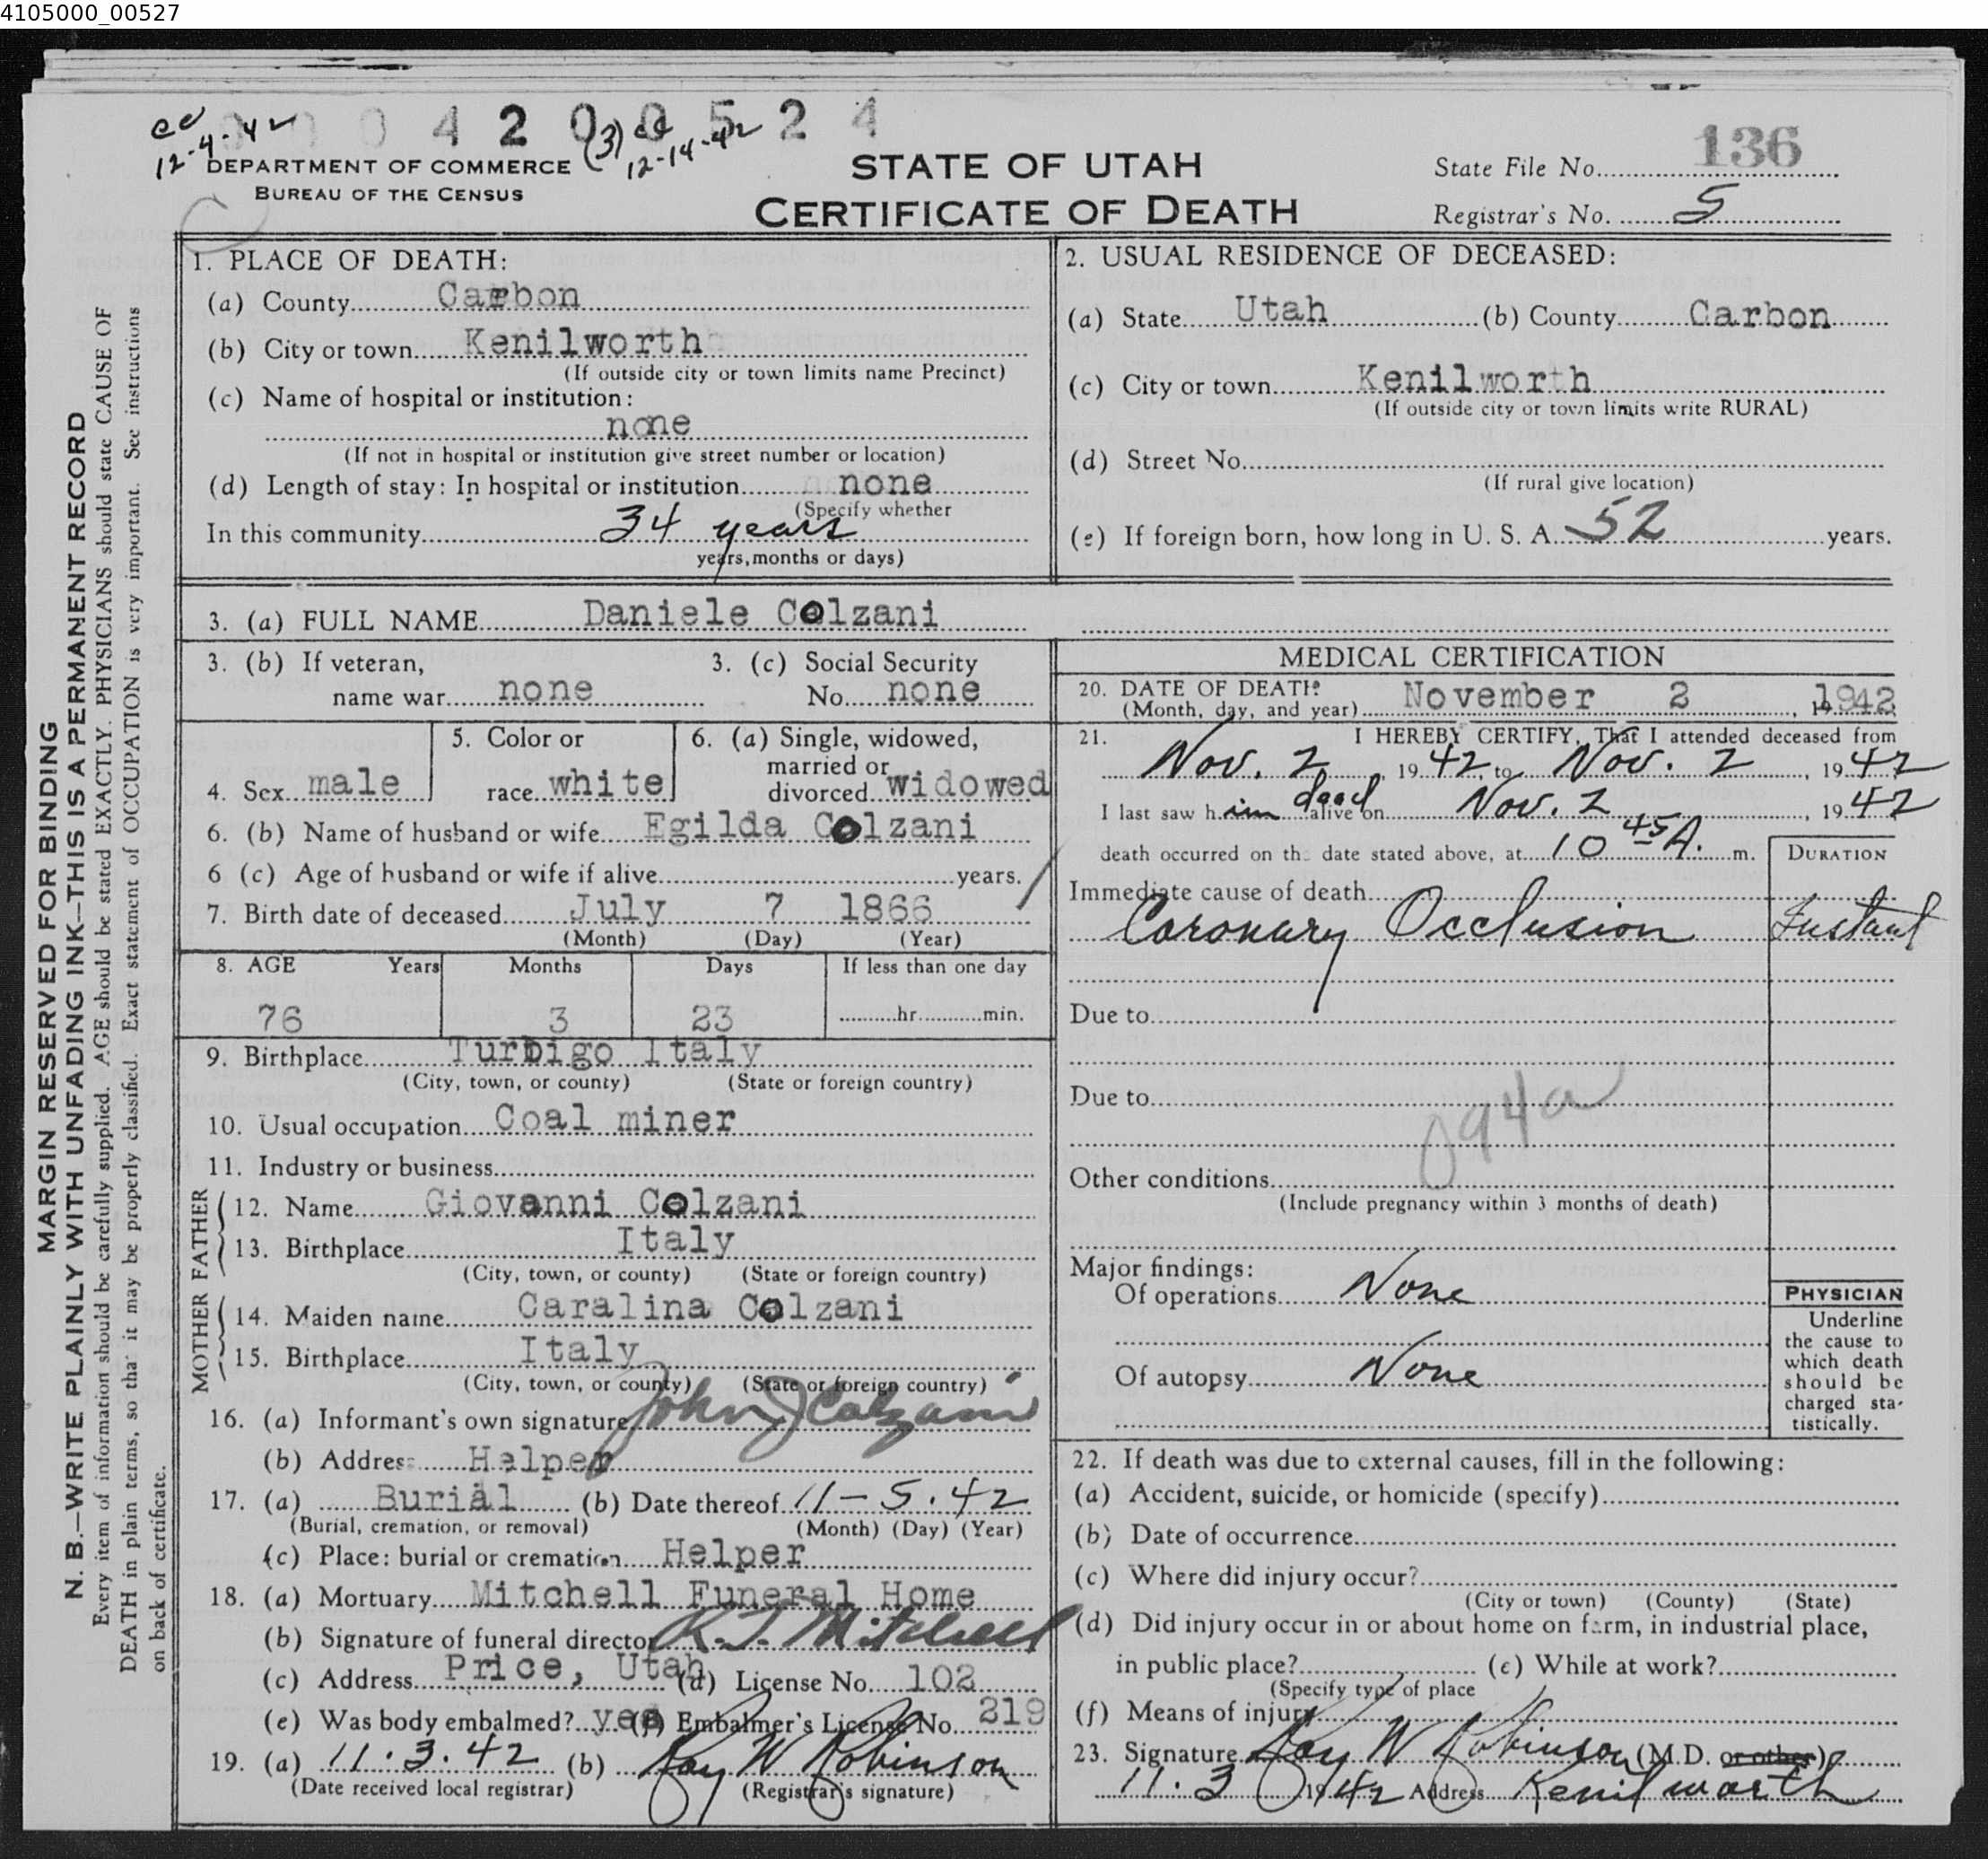 4105000_00527
cc 12-4-42
0 0 0 4 2 0 0 5 2 4
(3) cc 12-14-42
DEPARTMENT OF COMMERCE
BUREAU OF THE CENSUS
STATE OF UTAH
CERTIFICATE OF DEATH
State File No. 136
Registrar's No. 5
MARGIN RESERVED FOR BINDING
N. B.—WRITE PLAINLY WITH UNFADING INK—THIS IS A PERMANENT RECORD
Every item of information should be carefully supplied. AGE should be stated EXACTLY. PHYSICIANS should state CAUSE OF
DEATH in plain terms, so that it may be properly classified. Exact statement of OCCUPATION is very important. See instructions
on back of certificate.
1. PLACE OF DEATH:
(a) County Carbon
(b) City or town Kenilworth
(If outside city or town limits name Precinct)
(c) Name of hospital or institution:
none
(If not in hospital or institution give street number or location)
(d) Length of stay: In hospital or institution none
(Specify whether
In this community 34 years
years, months or days)
2. USUAL RESIDENCE OF DECEASED:
(a) State Utah (b) County Carbon
(c) City or town Kenilworth
(If outside city or town limits write RURAL)
(d) Street No.
(If rural give location)
(e) If foreign born, how long in U. S. A. 52 years.
3. (a) FULL NAME Daniele Colzani
3. (b) If veteran,
name war none
3. (c) Social Security
No. none
4. Sex male
5. Color or
race white
6. (a) Single, widowed,
married or
divorced widowed
6. (b) Name of husband or wife Egilda Colzani
6 (c) Age of husband or wife if alive years.
7. Birth date of deceased July 7 1866
(Month) (Day) (Year)
8. AGE Years Months Days If less than one day
76 3 23 hr. min.
9. Birthplace Turbigo Italy
(City, town, or county) (State or foreign country)
10. Usual occupation Coal miner
11. Industry or business
FATHER
12. Name Giovanni Colzani
13. Birthplace Italy
(City, town, or county) (State or foreign country)
MOTHER
14. Maiden name Caralina Colzani
15. Birthplace Italy
(City, town, or county) (State or foreign country)
16. (a) Informant's own signature John J Colzani
(b) Address Helper
17. (a) Burial (b) Date thereof 11-5-42
(Burial, cremation, or removal) (Month) (Day) (Year)
(c) Place: burial or cremation Helper
18. (a) Mortuary Mitchell Funeral Home
(b) Signature of funeral director R.J. Mitchell
(c) Address Price, Utah (d) License No. 102
(e) Was body embalmed? yes (f) Embalmer's License No. 219
19. (a) 11.3.42 (b) Ray W Robinson
(Date received local registrar) (Registrar's signature)
MEDICAL CERTIFICATION
20. DATE OF DEATH
(Month, day, and year) November 2, 1942
21. I HEREBY CERTIFY, That I attended deceased from
Nov. 2, 1942, to Nov. 2, 1942
I last saw him dead alive on Nov. 2, 1942
death occurred on the date stated above, at 10 45 A. m.
DURATION
Immediate cause of death
Coronary Occlusion Instant
Due to
Due to
094a
Other conditions
(Include pregnancy within 3 months of death)
Major findings:
Of operations None
Of autopsy None
PHYSICIAN
Underline
the cause to
which death
should be
charged sta-
tistically.
22. If death was due to external causes, fill in the following:
(a) Accident, suicide, or homicide (specify)
(b) Date of occurrence
(c) Where did injury occur?
(City or town) (County) (State)
(d) Did injury occur in or about home on farm, in industrial place,
in public place? (e) While at work?
(Specify type of place
(f) Means of injury
23. Signature Ray W Robinson (M.D. or other)
11.3 1942 Address Kenilworth